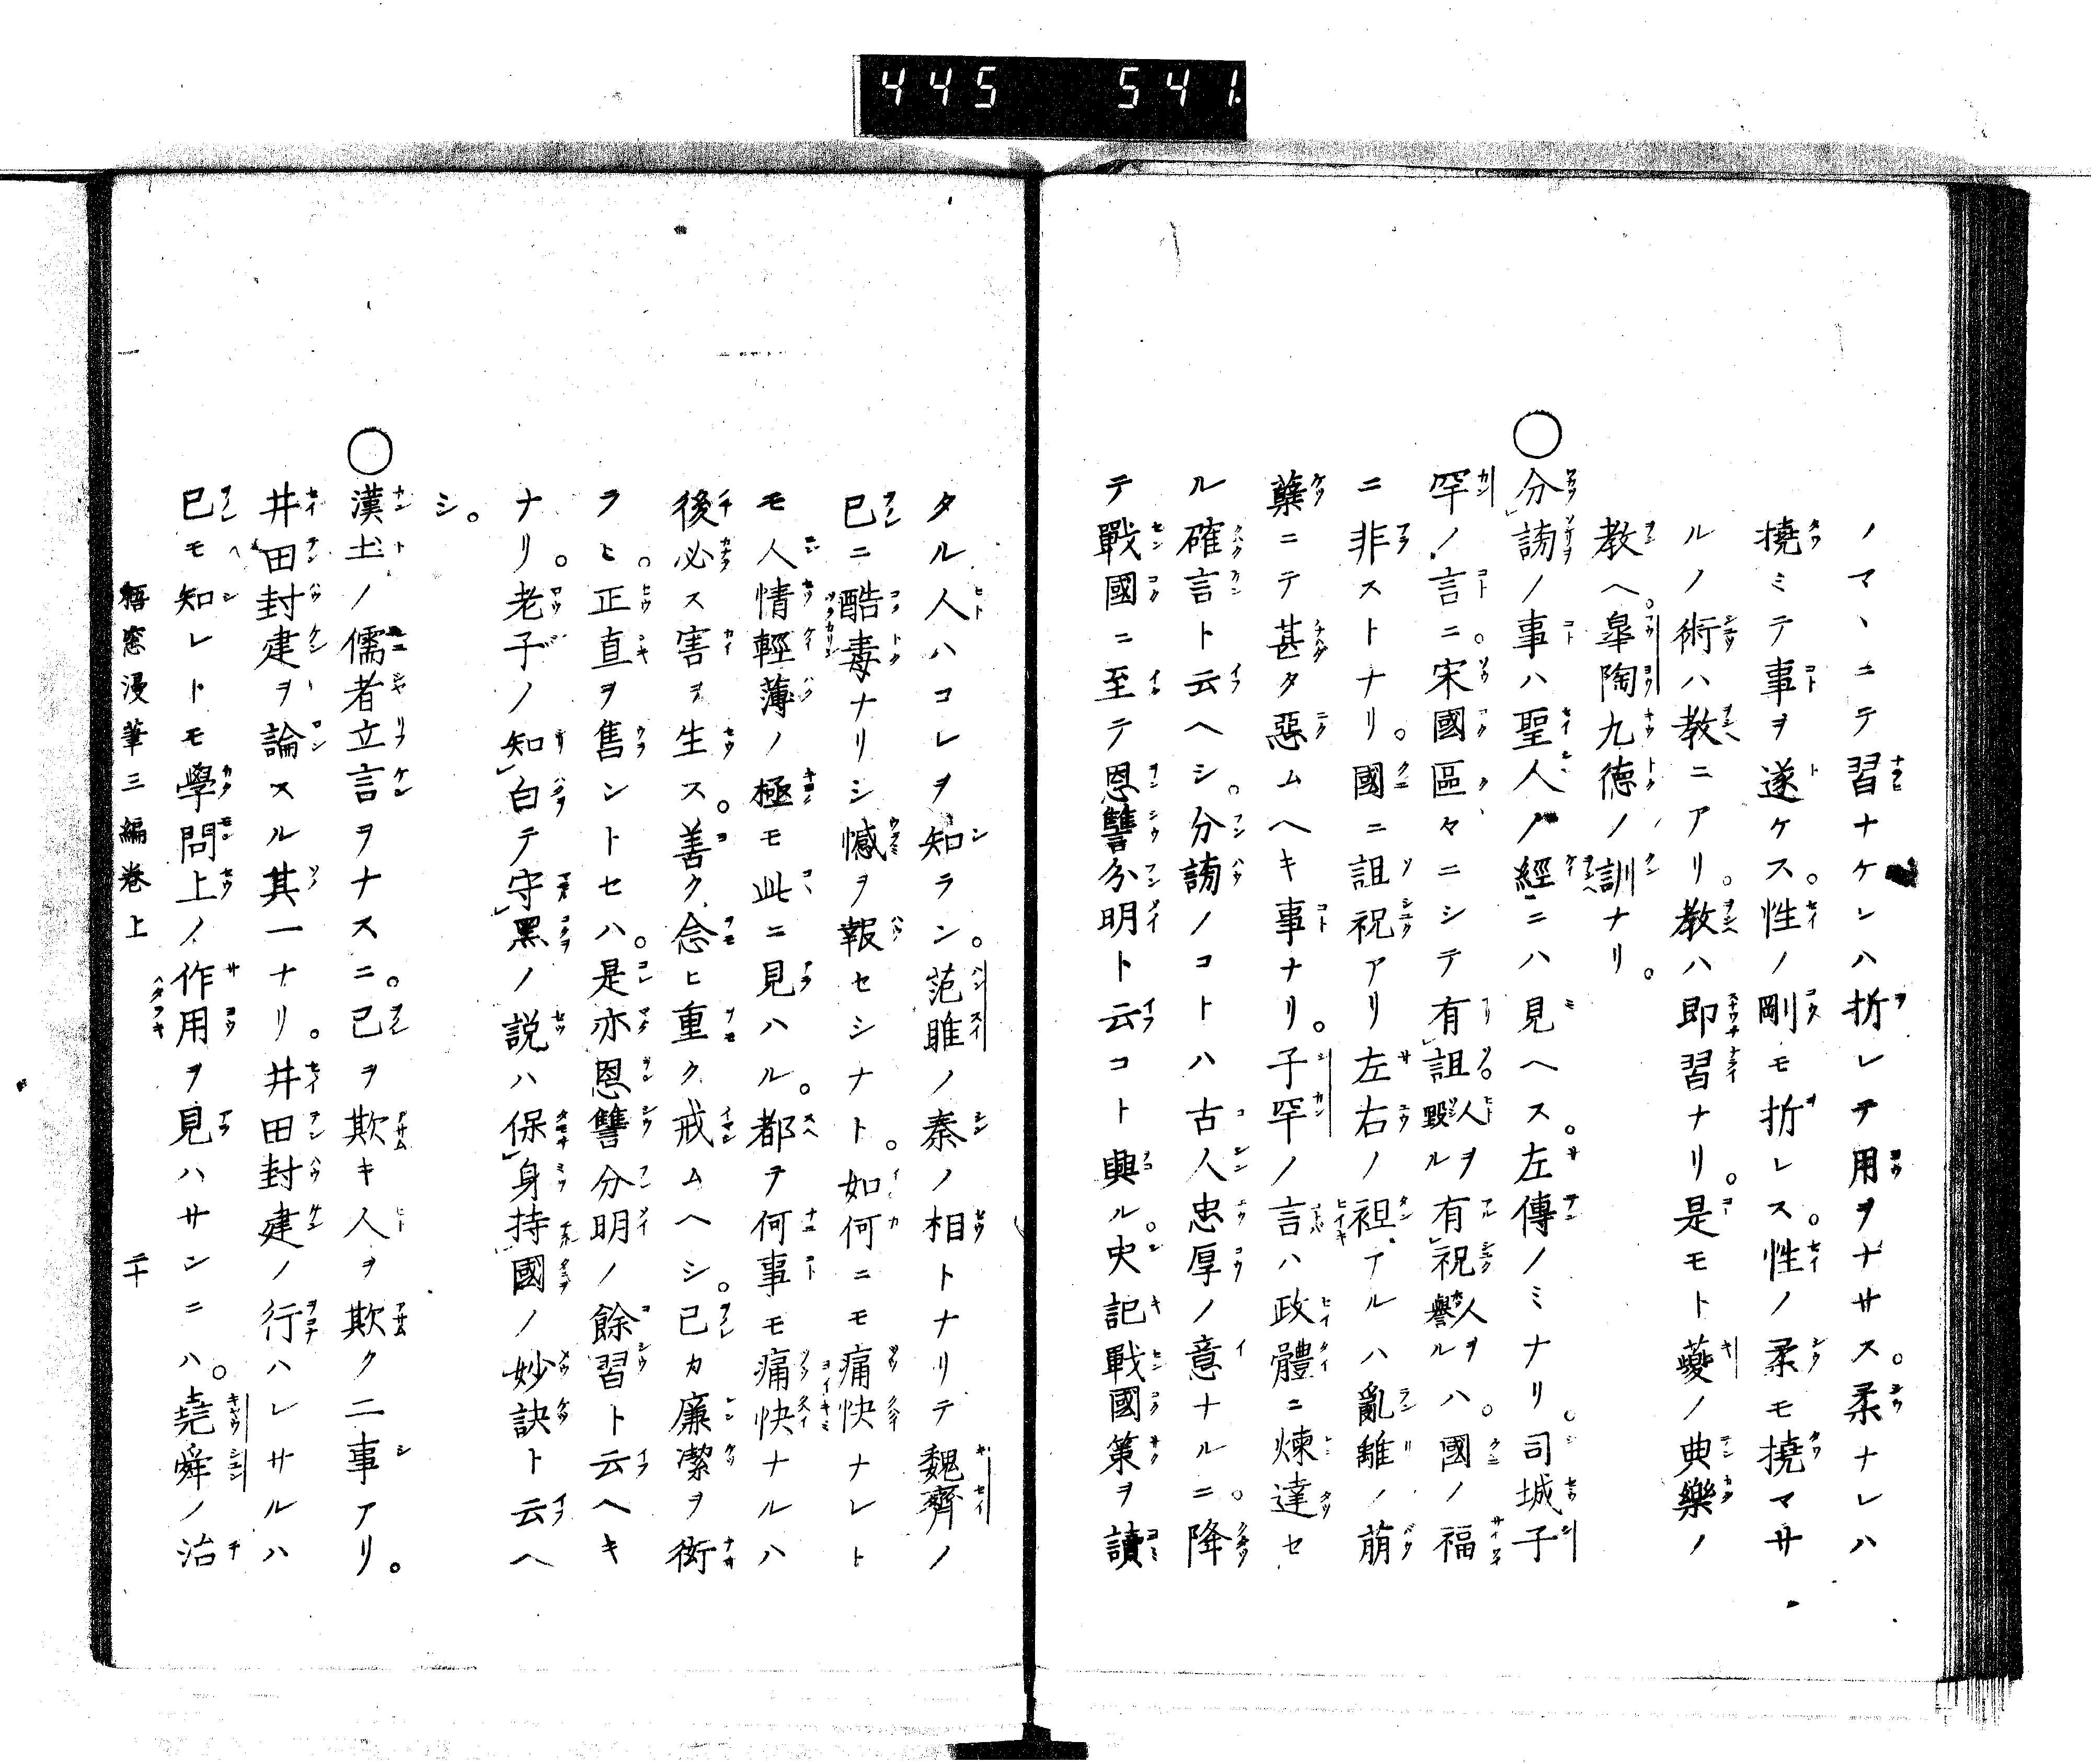 445 541.
ノマヽニテ習ナケレハ折レテ用ヲナサス。柔ナレハ
撓ミテ事ヲ遂ケス。性ノ剛モ折レス。性ノ柔モ撓マサ
ルノ術ハ教ニアリ。教ハ即習ナリ。是モト夔ノ典樂ノ
教ヘ。皐陶九德ノ訓ナリ。
○分謗ノ事ハ聖人ノ經ニハ見ヘス。左傳ノミナリ。司城子
罕ノ言ニ。宋國區々ニシテ有詛人ヲ毀ル有祝人ヲ譽ルハ。國ノ福
ニ非ストナリ。國ニ詛祝アリ左右ノ袒アルハ亂離ノ萠
蘖ニテ甚タ惡ムヘキ事ナリ。子罕ノ言ハ政體ニ煉達セ
ル確言ト云ヘシ。分謗ノコトハ古人忠厚ノ意ナルニ。降
テ戰國ニ至テ恩讐分明ト云コト興ル。史記戰國策ヲ讀
タル人ハコレヲ知ラン。范雎ノ秦ノ相トナリテ魏齊ノ
已ニ酷毒ナリシ憾ヲ報セシナト。如何ニモ痛快ナレト
モ人情輕薄ノ極モ此ニ見ハル。都ヲ何事モ痛快ナルハ
後必ス害ヲ生ス。善ク念ヒ重ク戒ムヘシ。己カ廉潔ヲ衒
ヲヒ。正直ヲ售ントセハ。是亦恩讐分明ノ餘習ト云ヘキ
ナリ。老子ノ知白テ守黑ノ説ハ保身持國ノ妙訣ト云ヘ
シ。
○漢土ノ儒者立言ヲナスニ。己ヲ欺キ人ヲ欺ク二事アリ。
井田封建ヲ論スル其一ナリ。井田封建ノ行ハレサルハ
已モ知レトモ學問上ノ作用ヲ見ハサンニハ。堯舜ノ治
梧窓漫筆三編卷上 二十